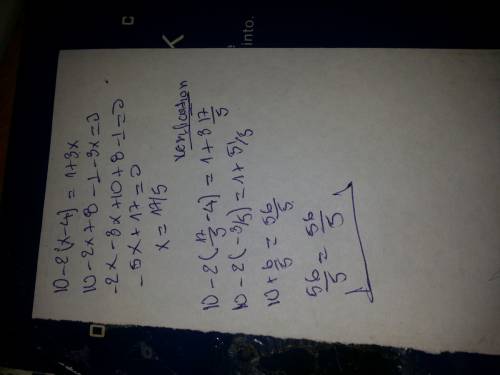 10-2(x-4) = 1+3x
10-2x+8-1-3x=0
-2x-3x+10+8-1=0
-5x+17=0
x = 17/5
verification
10-2(17/5-4) = 1+3 17/5
10-2(-3/5)=1+51/5
10+6/5=56/5
56/5=56/5
into.
K
C